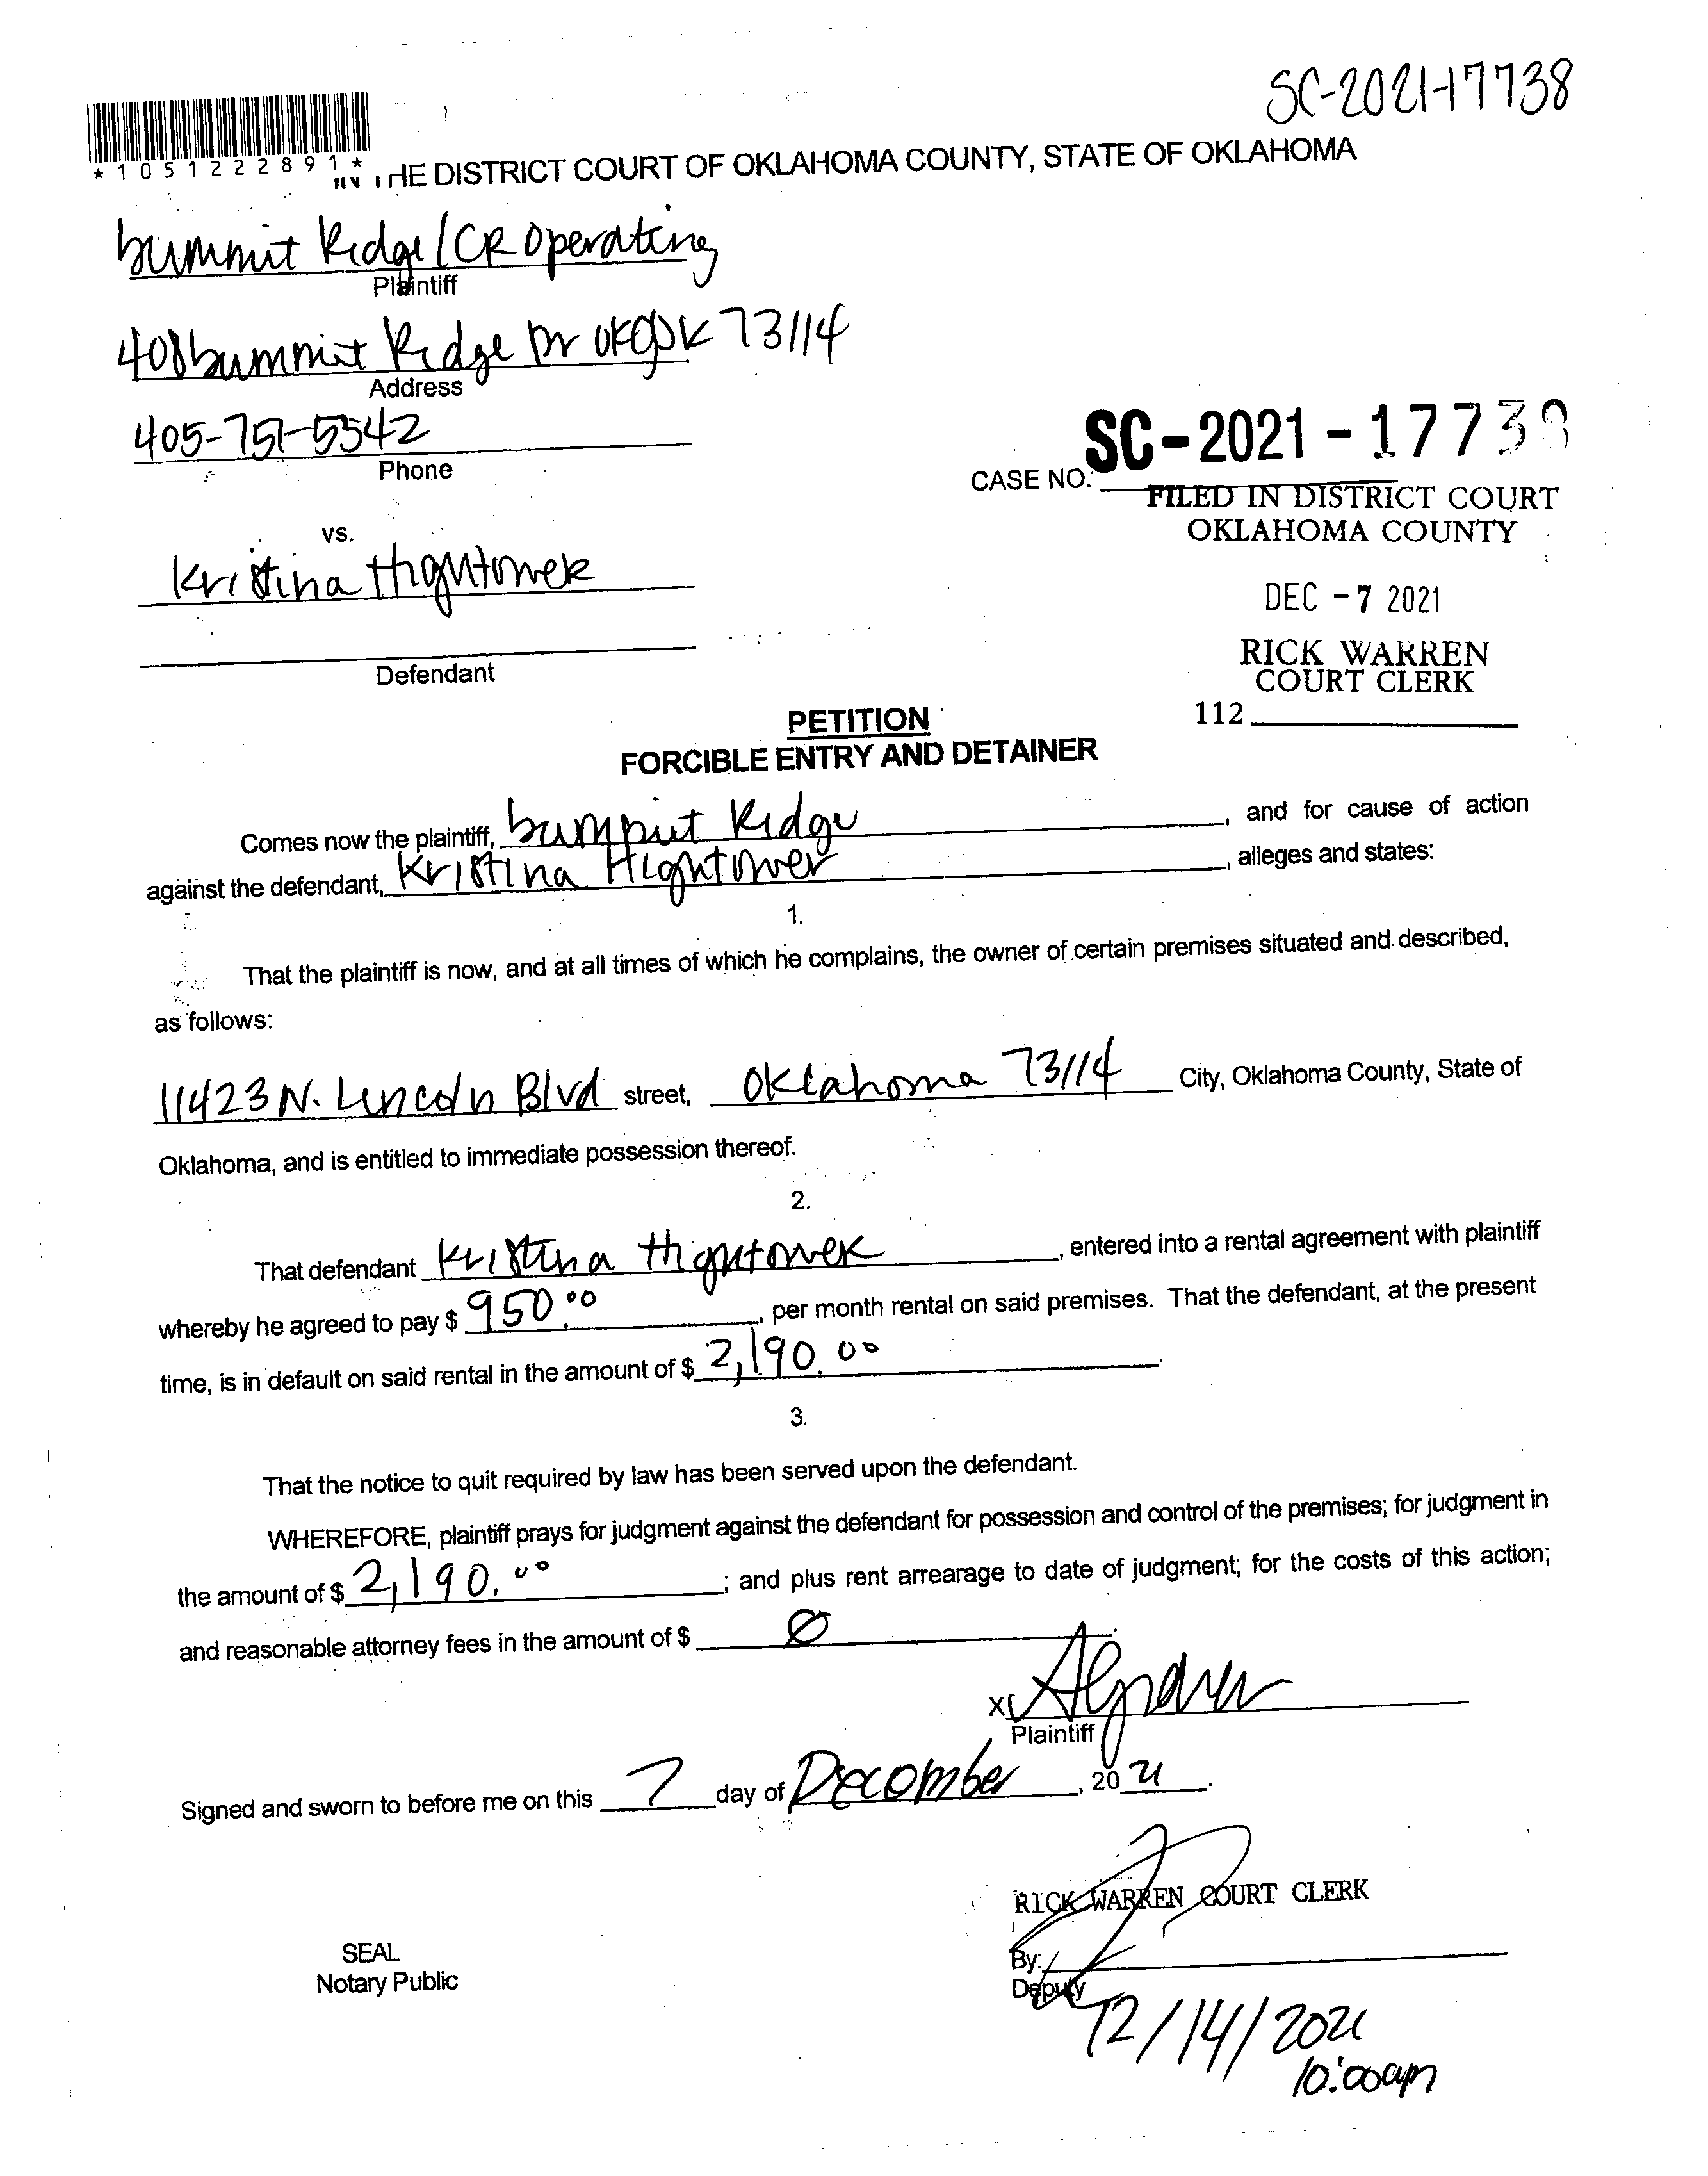 SC-2021-17738
*1051222891*
THE DISTRICT COURT OF OKLAHOMA COUNTY, STATE OF OKLAHOMA
Summit Ridge/CR Operating
Plaintiff
408 Summit Ridge Dr OKC OK 73114
Address
405-751-5542
Phone
SC-2021-17738
CASE NO.
FILED IN DISTRICT COURT
OKLAHOMA COUNTY
vs.
Kristina Hightower
DEC -7 2021
RICK WARREN
COURT CLERK
Defendant
112
PETITION
FORCIBLE ENTRY AND DETAINER
Comes now the plaintiff, Summit Ridge, and for cause of action
against the defendant, Kristina Hightower, alleges and states:
1.
That the plaintiff is now, and at all times of which he complains, the owner of certain premises situated and described,
as follows:
11423 N. Lincoln Blvd street, Oklahoma 73114 City, Oklahoma County, State of
Oklahoma, and is entitled to immediate possession thereof.
2.
That defendant Kristina Hightower, entered into a rental agreement with plaintiff
whereby he agreed to pay $ 950.00, per month rental on said premises. That the defendant, at the present
time, is in default on said rental in the amount of $ 2,190.00.
3.
That the notice to quit required by law has been served upon the defendant.
WHEREFORE, plaintiff prays for judgment against the defendant for possession and control of the premises; for judgment in
the amount of $ 2,190.00; and plus rent arrearage to date of judgment; for the costs of this action;
and reasonable attorney fees in the amount of $ 0.
X
Plaintiff
Signed and sworn to before me on this 7 day of December, 2021.
RICK WARREN COURT CLERK
SEAL
Notary Public
By:
Deputy
12/14/2021
10:00am